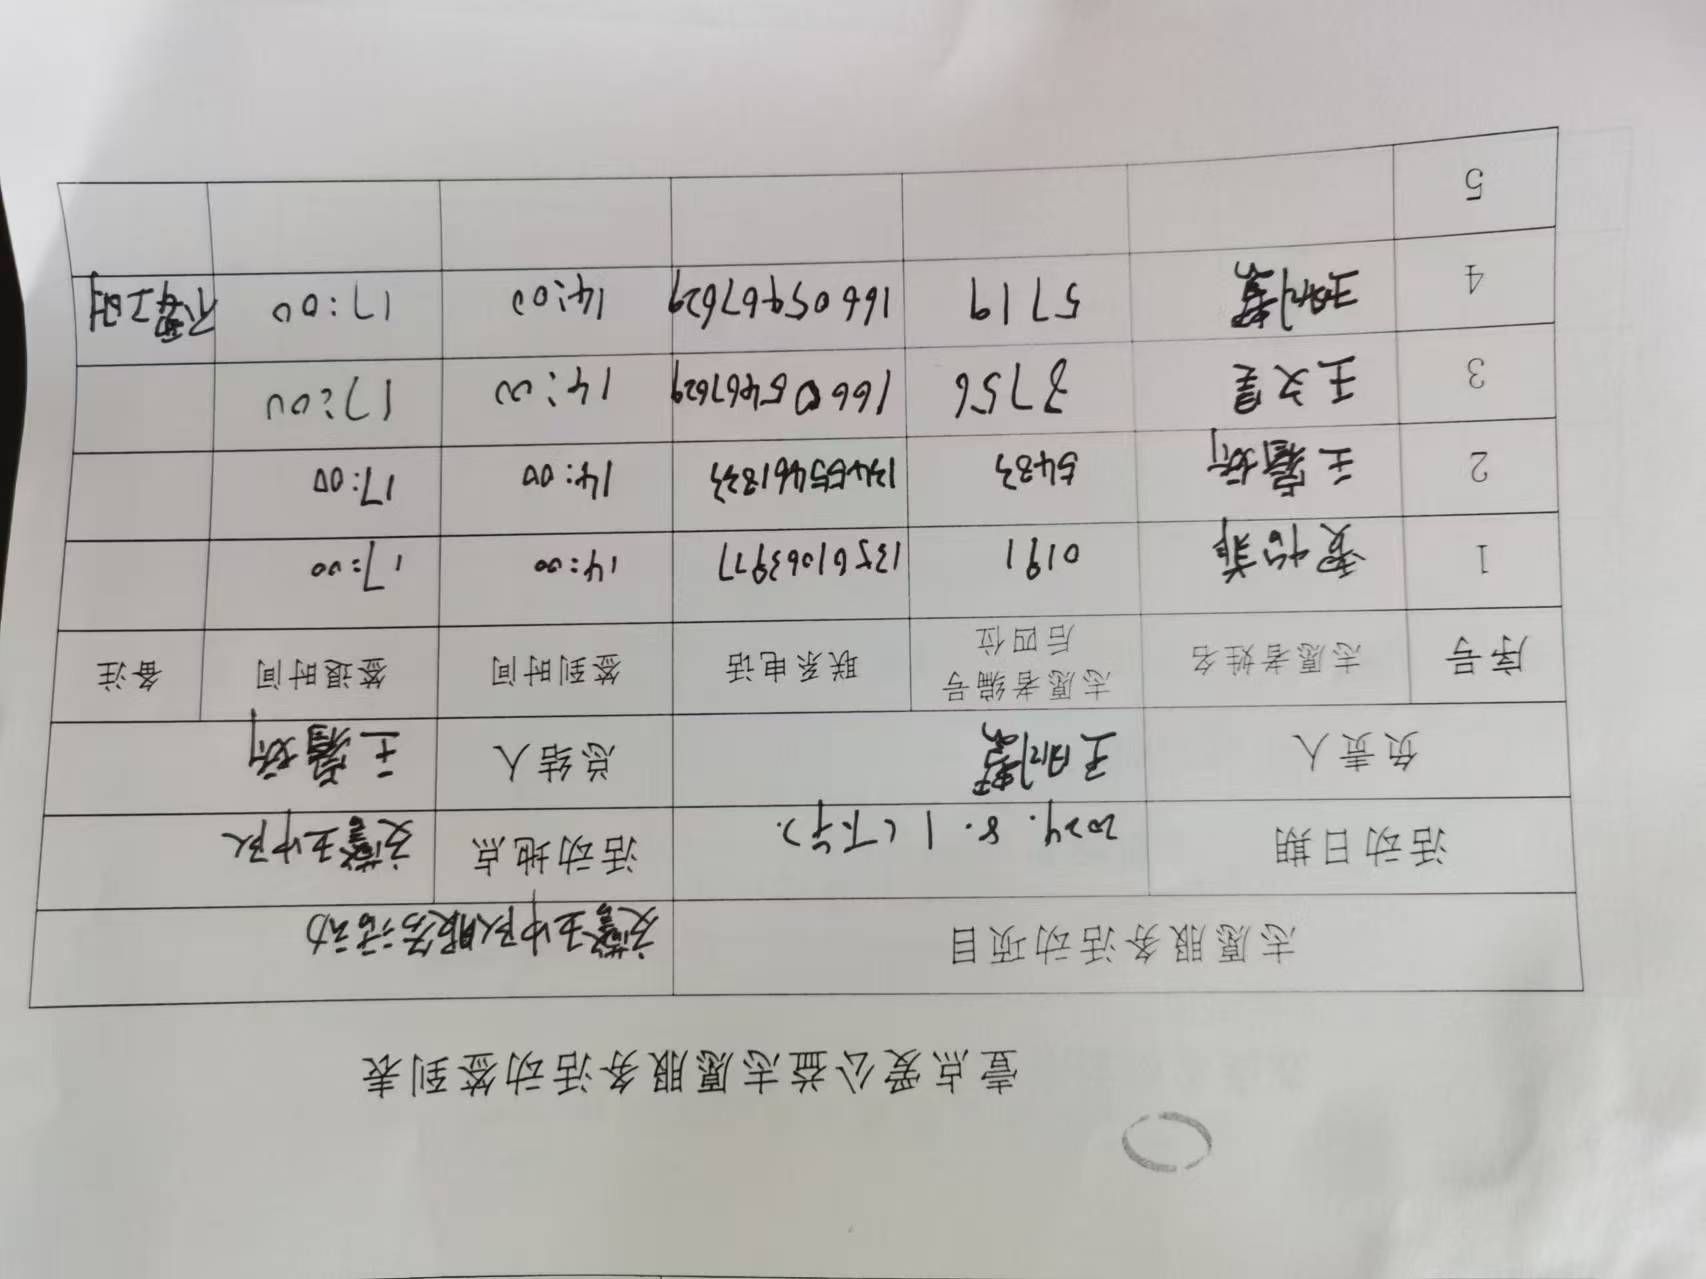 壹点爱公益志愿服务活动签到表
志愿服务活动项目 交警五中队服务活动
活动日期 2024.8.1(下午). 活动地点 交警五中队
负责人 总结人
序号 志愿者姓名 志愿者编号后四位 联系电话 签到时间 签退时间 备注
1 0191 13561063977 14:00 17:00
2 5483 13455461833 14:00 17:00
3 王文昊 3756 16605467629 14:00 17:00
4 5719 16605467629 14:00 17:00 不要工时
5